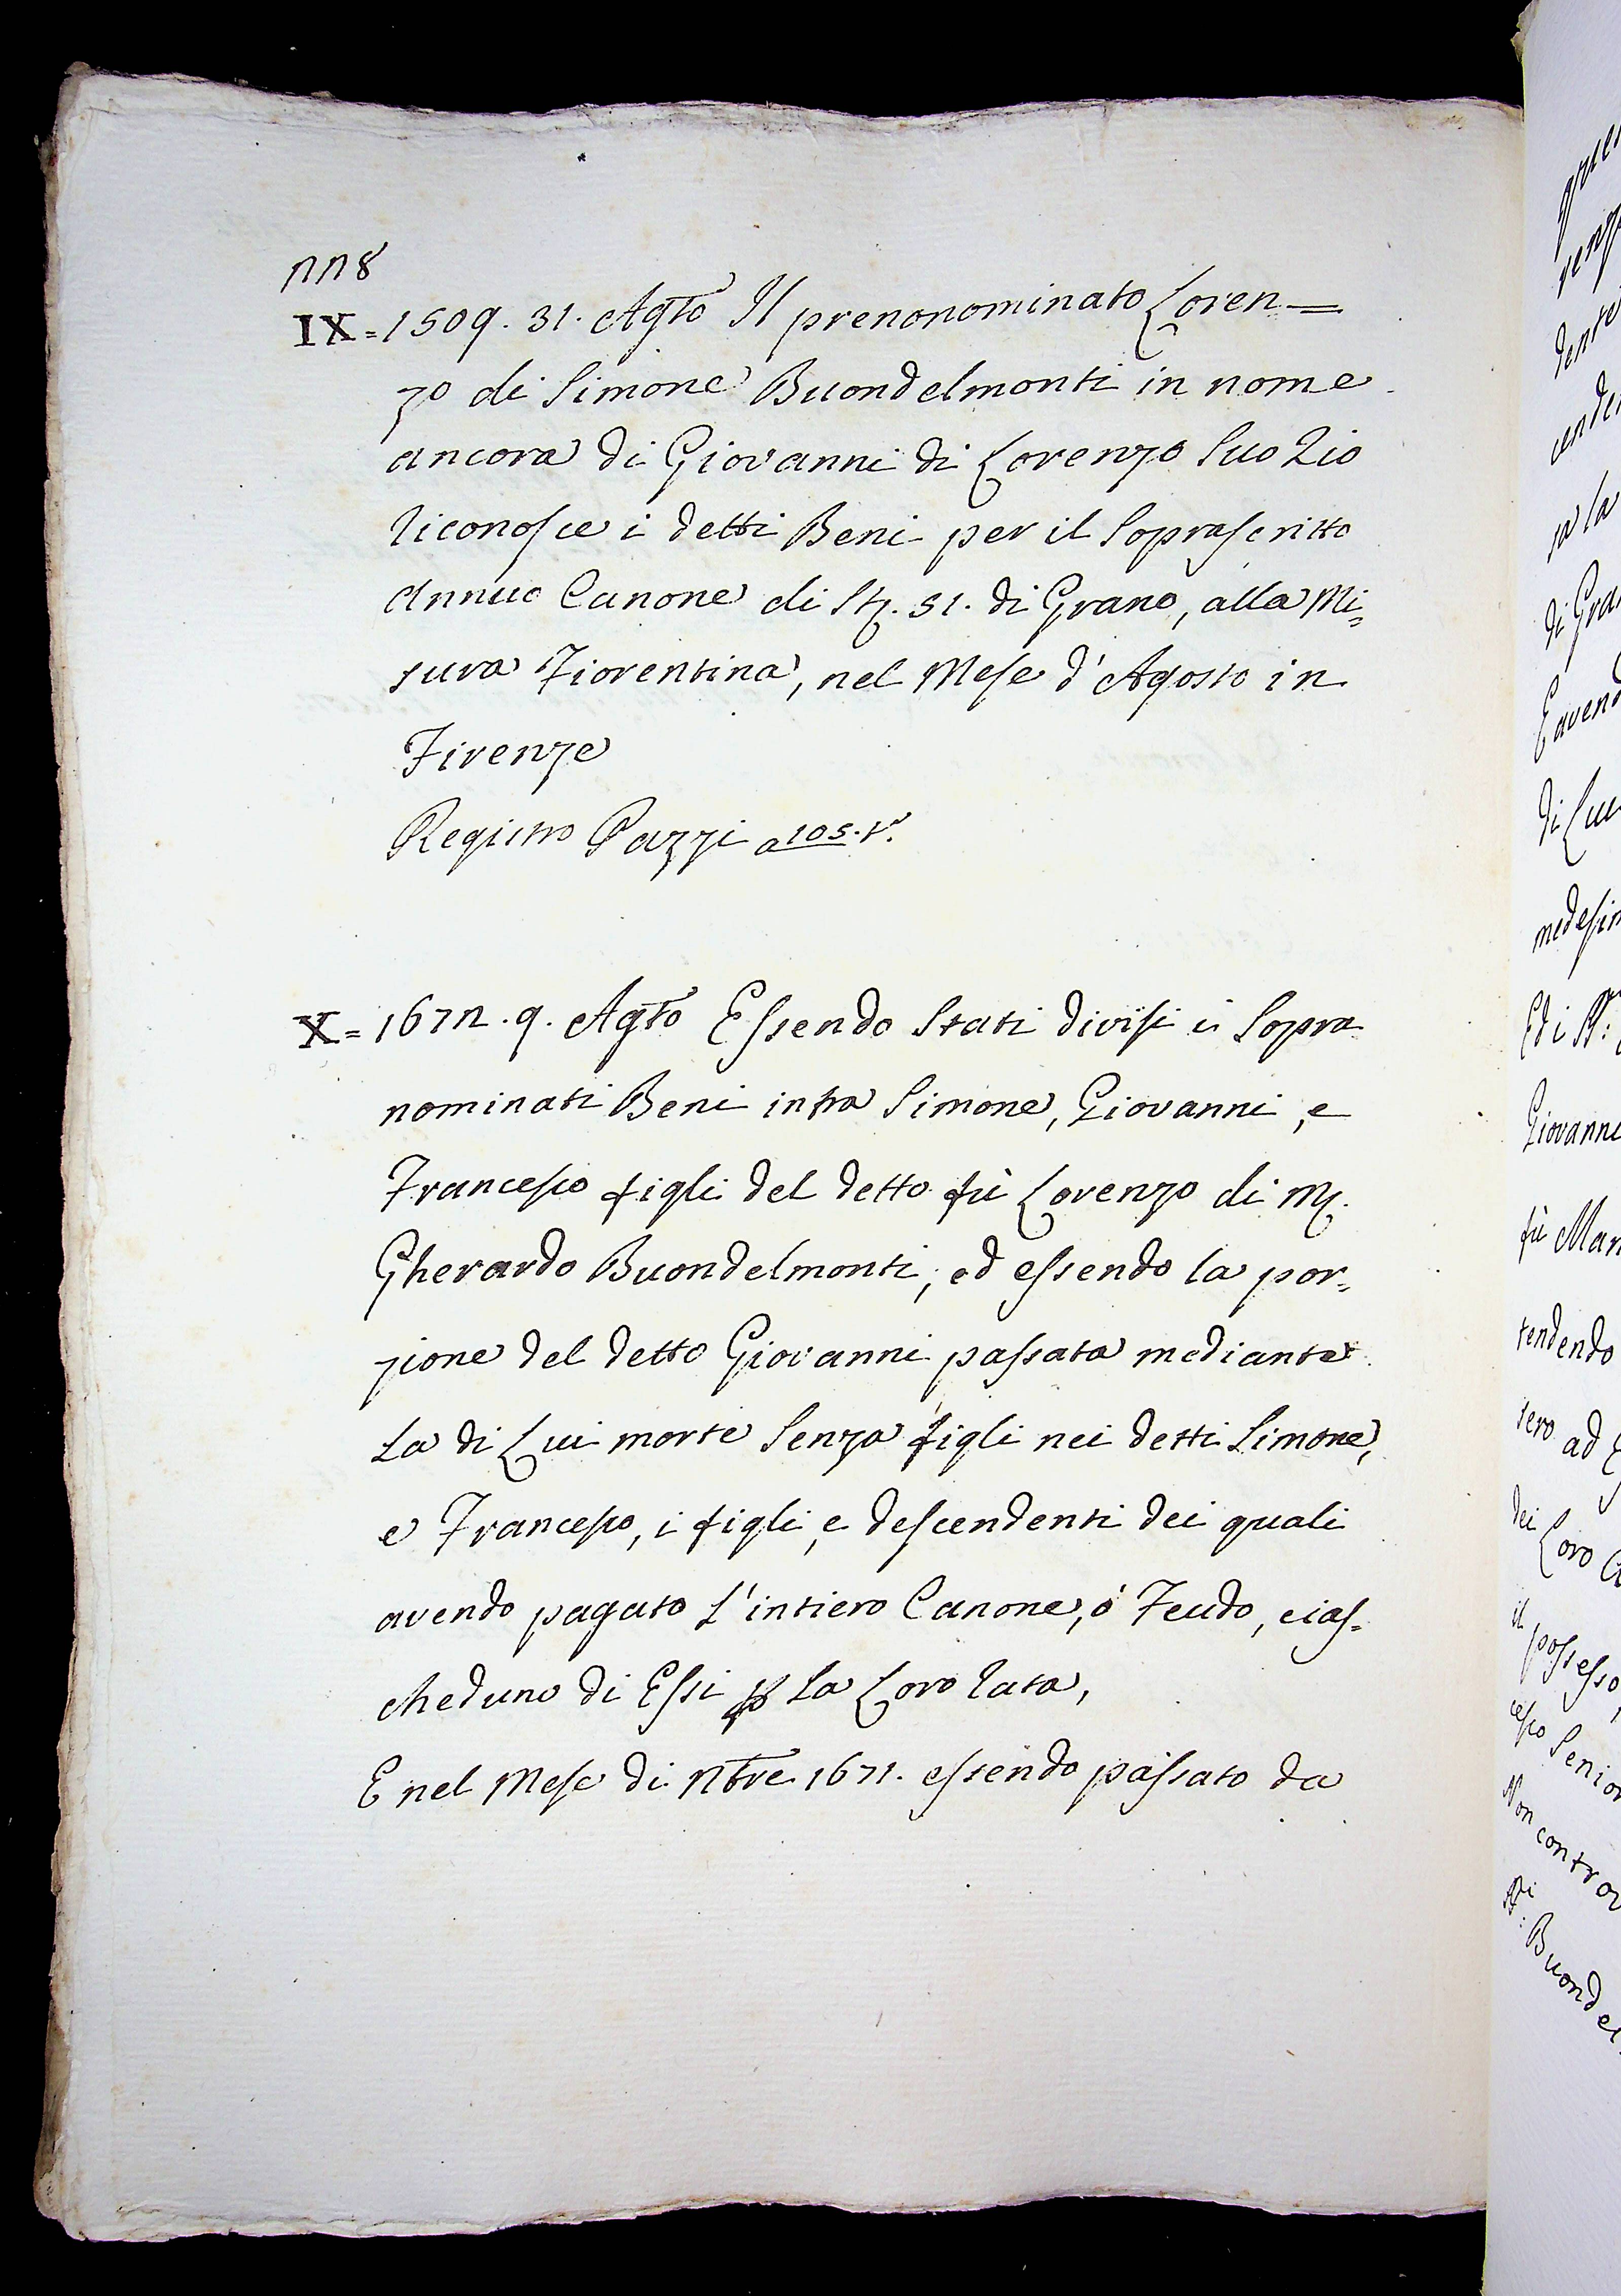 228
IX = 1509. 31. Agto Il prenonominato Loren=
zo di Simone Buondelmonti in nome
ancora di Giovanni di Lorenzo Suo Zio
riconosce i detti Beni per il Soprascritto
Annuo Canone di St. 51. di Grano, alla Mi=
sura Fiorentina, nel Mese d'Agosto in
Firenze
Registro Pazzi a 105. t.
X = 1672. 9. Agto Essendo Stati divisi i Sopra
nominati Beni intra Simone, Giovanni, e
Francesco figli del detto fù Lorenzo di M.
Gherardo Buondelmonti, ed essendo la por=
zione del detto Giovanni passata mediante
La di Lui morte Senza figli nei detti Simone,
e Francesco, i figli, e descendenti dei quali
avendo pagato L'intiero Canone, ò Feudo, cias=
cheduno di Essi p La Loro rata,
E nel Mese di Nbre 1671. essendo passato da
di Gra
E avend
di Lui
medesim
Ed i SS:
Giovanni
fù Man
tendendo
sero ad
dei Loro
il possesso,
cesco Senior
Non contro
Buondel